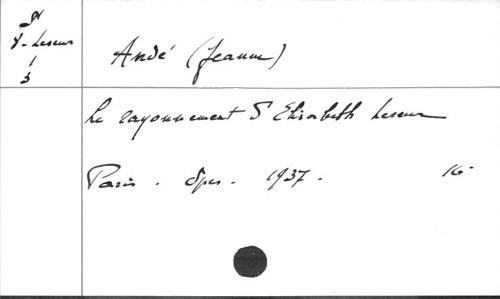 N
8 - Leseur
1
3
André (Jeanne)
Le rayonnement d'Elisabeth Leseur
Paris. Spes. 1937. 16°